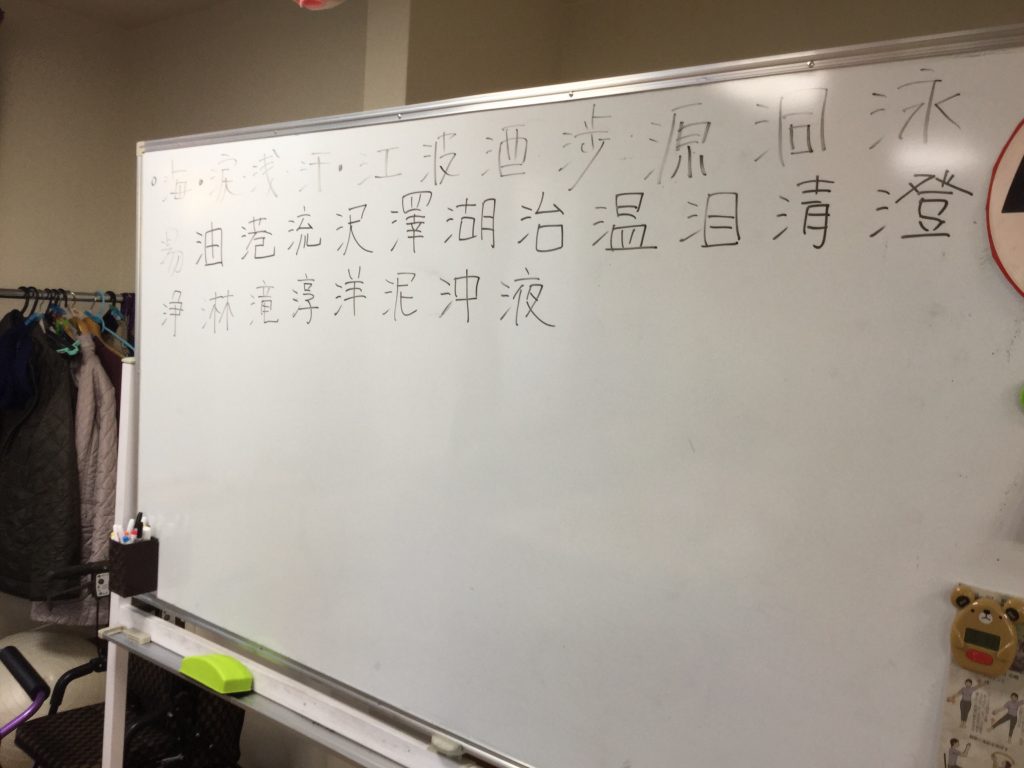 海・涙・浅・汗・江波酒渉源洞泳
湯油港流沢澤湖治温泪清澄
浄淋滝淳洋泥沖液